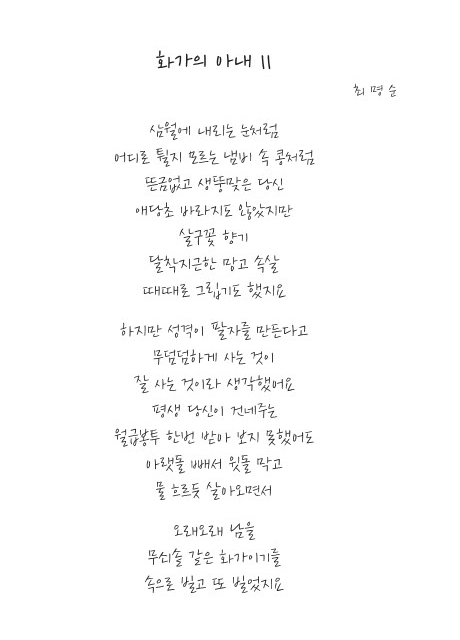 화가의 아내 II
최명순
삼월에 내리는 눈처럼
어디로 튈지 모르는 냄비 속 콩처럼
뜬금없고 생뚱맞은 당신
애당초 바라지도 않았지만
살구꽃 향기
달착지근한 망고 속살
때때로 그립기도 했지요
하지만 성격이 팔자를 만든다고
무덤덤하게 사는 것이
잘 사는 것이라 생각했어요
평생 당신이 건네주는
월급봉투 한번 받아 보지 못했어도
아랫돌 빼서 윗돌 막고
물 흐르듯 살아오면서
오래오래 남을
무쇠솥 같은 화가이기를
속으로 빌고 또 빌었지요